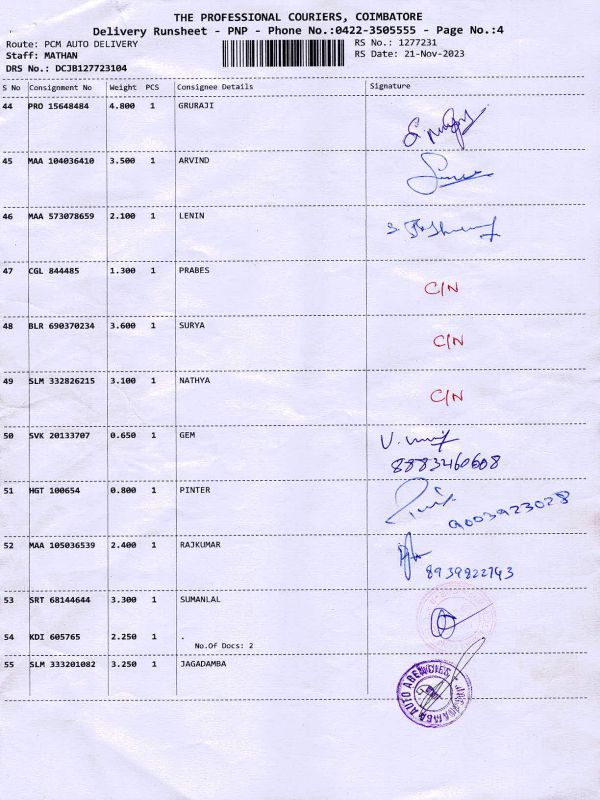 THE PROFESSIONAL COURIERS, COIMBATORE
Delivery Runsheet - PNP - Phone No.:0422-3505555 - Page No.:4
Route: PCM AUTO DELIVERY RS No.: 1277231
Staff: MATHAN RS Date: 21-Nov-2023
DRS No.: DCJB127723104
S No Consignment No Weight PCS Consignee Details Signature
44 PRO 15648484 4.800 1 GRURAJI
45 MAA 104036410 3.500 1 ARVIND
46 MAA 573078659 2.100 1 LENIN
47 CGL 844485 1.300 1 PRABES C/N
48 BLR 690370234 3.600 1 SURYA C/N
49 SLM 332826215 3.100 1 NATHYA C/N
50 SVK 20133707 0.650 1 GEM
8883460608
51 HGT 100654 0.800 1 PINTER
9003923028
52 MAA 105036539 2.400 1 RAJKUMAR
8939822743
53 SRT 68144644 3.300 1 SUMANLAL
54 KDI 605765 2.250 1 .
No.Of Docs: 2
55 SLM 333201082 3.250 1 JAGADAMBA
JAGADAMBA AUTO AGENCIES